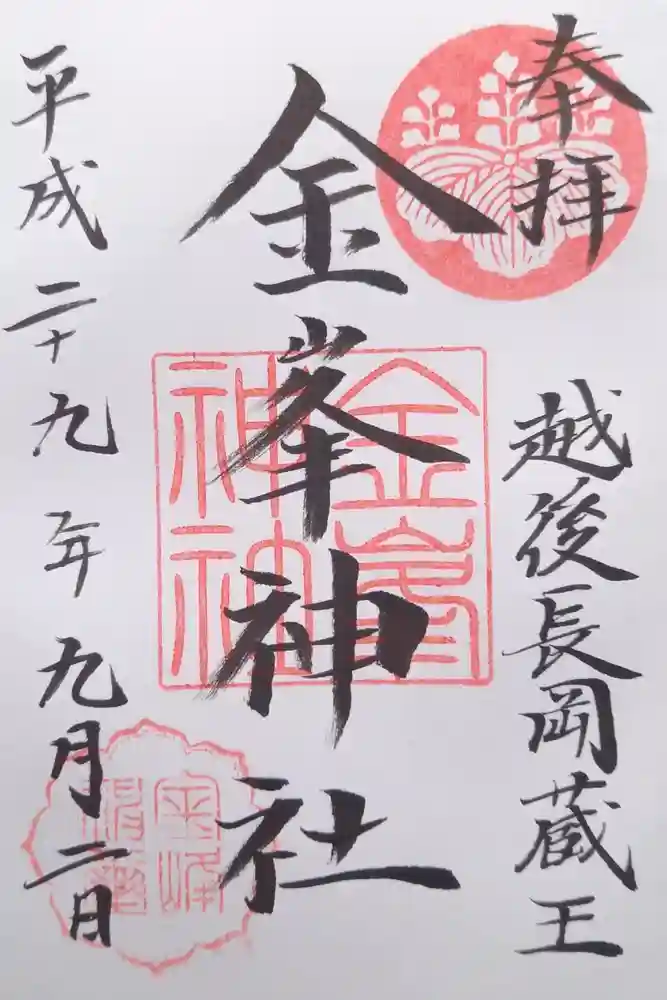 奉拝
越後長岡蔵王
金峯神社
平成二十九年九月二日